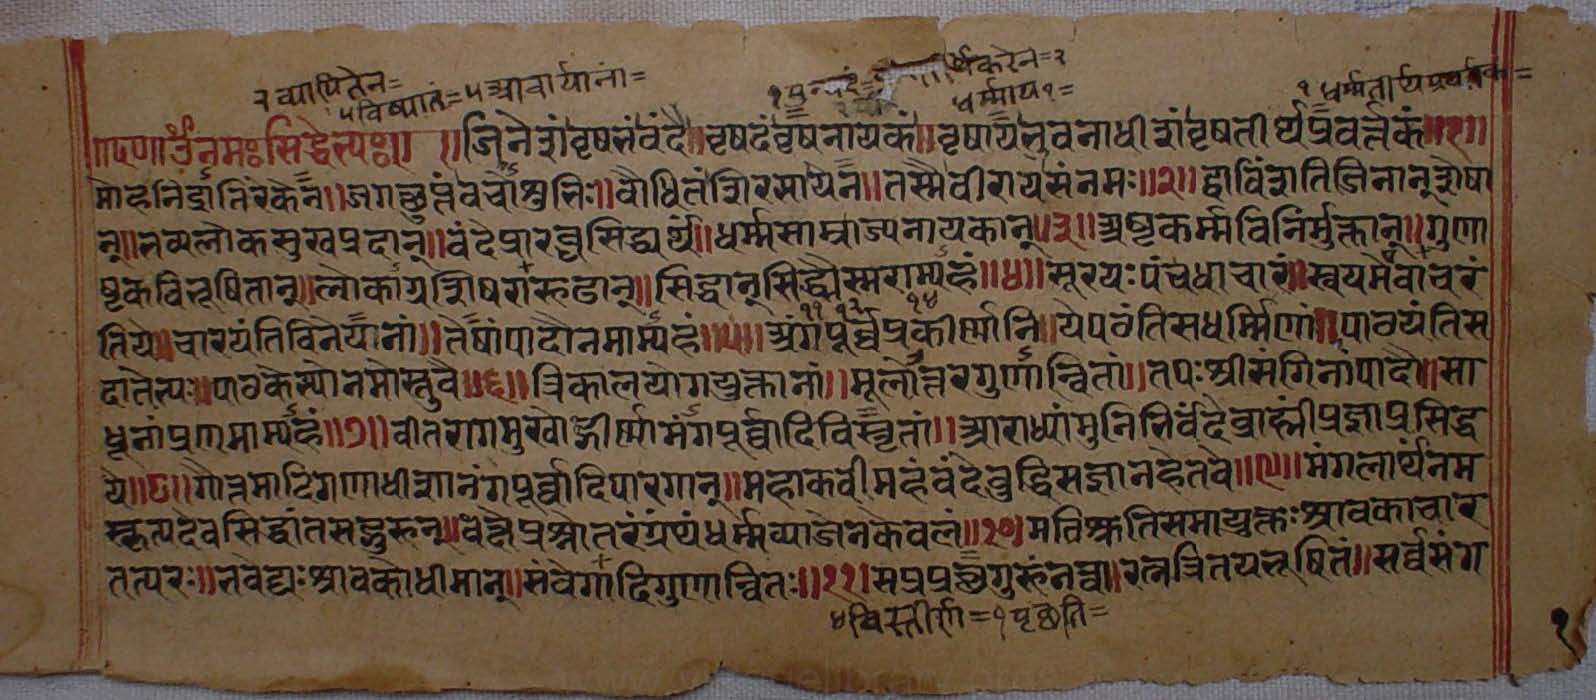 २ व्यापितेन= ५ आचार्यानां=
५ विष्यातं= धर्म्माय १=
॥ॐनमःसिद्धेभ्यः॥ ॥जिनेशंवृषभंवंदे॥वृषदंवृषनायकं॥वृषायभुवनाधीशंवृषतीर्थप्रवर्त्तकं॥१॥
मोहनिर्द्रातिरेकेन॥जगत्सुप्तंवचोंशुभिः॥वोधितंशिरसायेन॥तस्मैवीरायसंनमः॥२॥द्वाविंशतिजिनान्शेषा
न्॥भव्यलोकसुखप्रदान्॥वंदेप्रारब्धसिद्ध्यर्थं॥धर्म्मसाम्राज्यनायकान्॥३॥अष्टकर्म्मविनिर्मुक्तान्॥गुणा
ष्टकविभूषितान्॥लोकाग्रशिषरारूढान्॥सिद्धान्सिद्ध्यैस्मराम्यहं॥४॥सूरयःपंचधाचारं॥स्वयमेवाचरं
तिये॥चारयंतिविनेयानां॥तेषांपादौनमाम्यहं॥५॥अंगपूर्व्वप्रकीर्णानि॥येपठंतिसधर्म्मिणां॥पाठयंतिस
दातेभ्यः॥पाठकेभ्योनमोस्तुवै॥६॥त्रिकालयोगयुक्तानां॥मूलोत्तरगुणान्वितां॥तपःश्रीसंगिनांपादौ॥सा
धूनांप्रणमाम्यहं॥७॥वीतरागमुखोद्गीर्णामंगपूर्व्वादिविस्तृतां॥आराध्यांमुनिभिर्वंदेब्राह्मीप्रज्ञाप्रसिद्ध
ये॥८॥गौत्तमादिगणाधीशानंगपूर्व्वादिपारगान्॥महाकवीमहंवंदेवुद्धिसज्ञानहेतवे॥९॥मंगलार्थंनम
स्कृत्यदेवसिद्धांतसद्गुरून्॥वक्षेप्रश्नोतरंग्रंथंधर्म्मव्याजेनकेवलं॥१०॥मतिश्रुतिसमायुक्तःश्रावकाचार
तत्परः॥भवेद्यःश्रावकोधीमान्॥संवेगादिगुणान्वितः॥११॥सप्रप्रच्छगुरुंनत्वा॥रत्नत्रितयभूषितं॥सर्व्वसंग
४ विस्तीर्ण= १ पृछति=
१